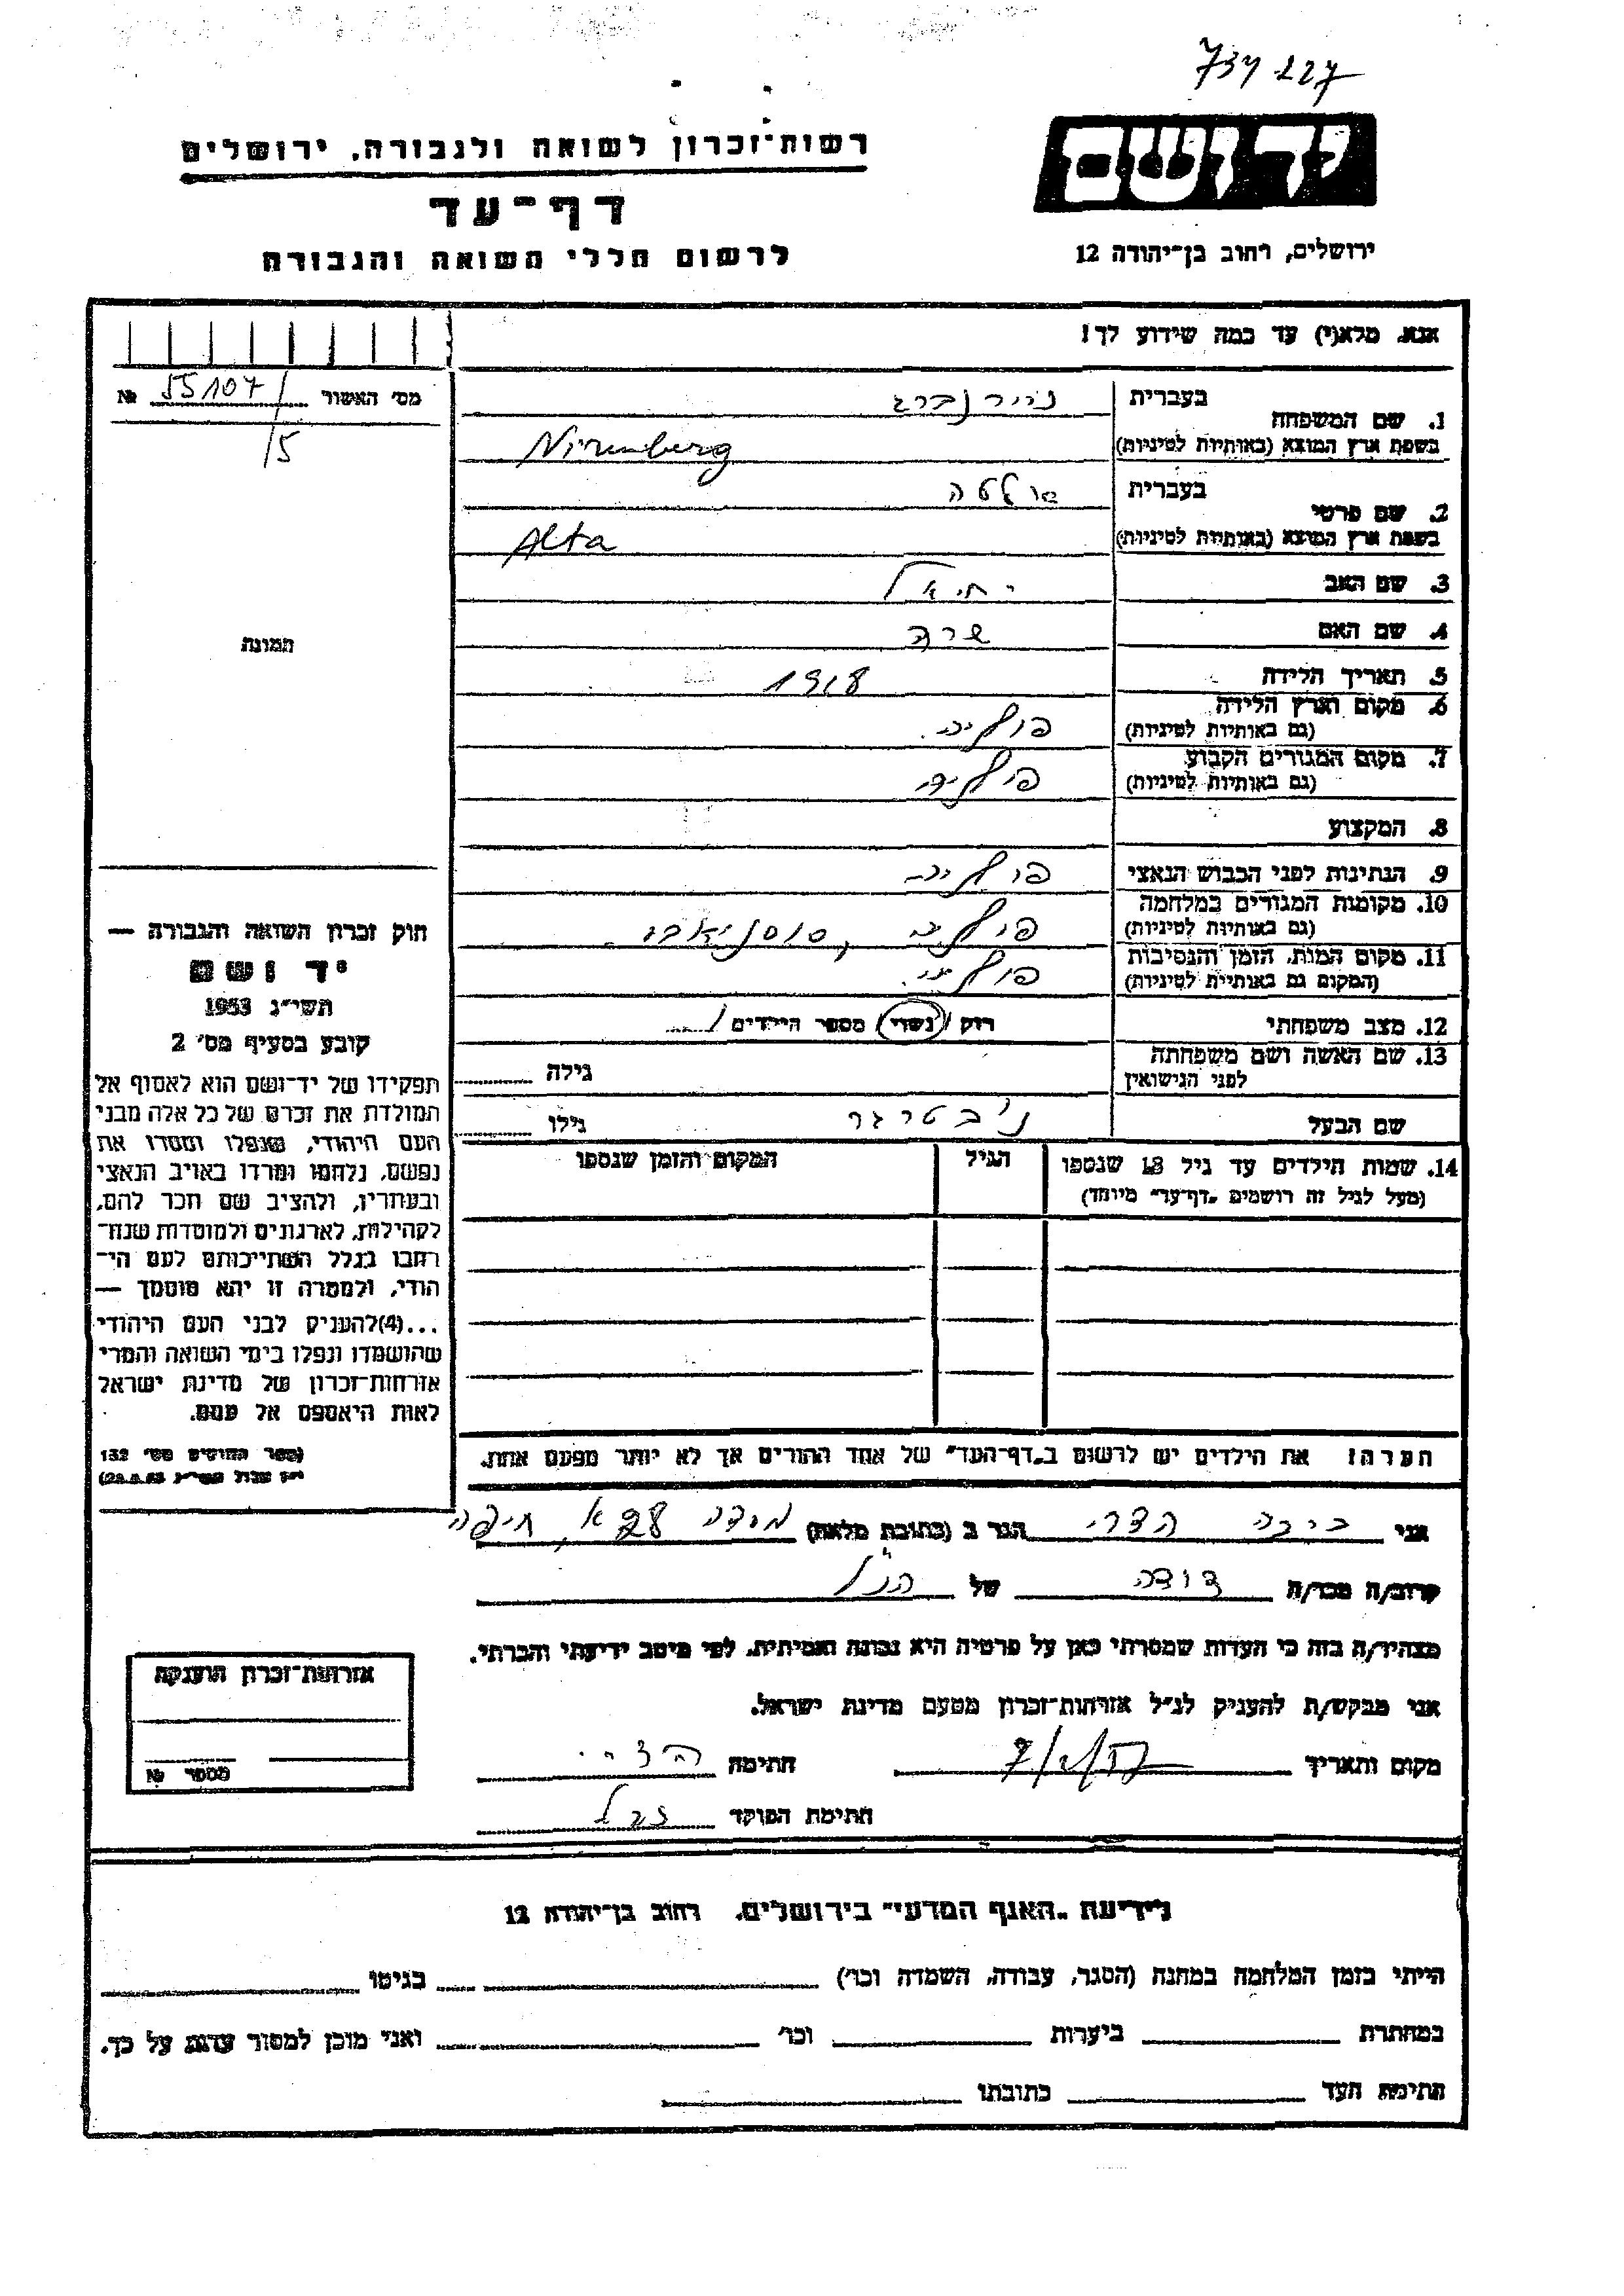 734 227
יד ושם
ירושלים, רחוב בן־יהודה 12
רשות־זכרון לשואה ולגבורה, ירושלים
דף־עד
לרשום חללי השואה והגבורה
אנא, מלא(י) עד כמה שידוע לך!
מס׳ האשור 55107/ №
/5
תמונה
1. שם המשפחה
בעברית נירנברג
בשפת ארץ המוצא (באותיות לטיניות) Nirenberg
2. שם פרטי
בעברית אלטה
בשפת ארץ המוצא (באותיות לטיניות) Alta
3. שם האב יחיאל
4. שם האם שרה
5. תאריך הלידה 1918
6. מקום וארץ הלידה פולין
(גם באותיות לטיניות)
7. מקום המגורים הקבוע פולין
(גם באותיות לטיניות)
8. המקצוע
9. הנתינות לפני הכבוש הנאצי פולין
10. מקומות המגורים במלחמה פולין,
(גם באותיות לטיניות)
11. מקום המות, הזמן והנסיבות פולין
(המקום גם באותיות לטיניות)
12. מצב משפחתי רווק / נשוי / מספר הילדים
13. שם האשה ושם משפחתה
לפני הנישואין גילה
שם הבעל גילו
14. שמות הילדים עד גיל 18 שנספו הגיל המקום והזמן שנספו
(מעל לגיל זה רושמים „דף־עד״ מיוחד)
הערה: את הילדים יש לרשום ב„דף־העד״ של אחד ההורים אך לא יותר מפעם אחת.
חוק זכרון השואה והגבורה —
יד ושם
תשי״ג 1953
קובע בסעיף מס׳ 2
תפקידו של יד־ושם הוא לאסוף אל
המולדת את זכרם של כל אלה מבני
העם היהודי, שנפלו ומסרו את
נפשם, נלחמו ומרדו באויב הנאצי
ובעוזריו, ולהציב שם וזכר להם,
לקהילות, לארגונים ולמוסדות שנח־
רבו בגלל השתייכותם לעם הי־
הודי, ולמטרה זו יהא מוסמך —
...(4)להעניק לבני העם היהודי
שהושמדו ונפלו בימי השואה והמרי
אזרחות־זכרון של מדינת ישראל
לאות היאספם אל עמם.
(ספר החוקים מס׳ 132
י״ז אלול תשי״ג 28.8.53)
אני הדרי הגר ב (כתובת מלאה) חיפה
קרוב/ה מכר/ה דודה של הנ״ל
מצהיר/ה בזה כי העדות שמסרתי כאן על פרטיה היא נכונה ואמיתית, לפי מיטב ידיעתי והכרתי.
אני מבקש/ת להעניק לנ״ל אזרחות־זכרון מטעם מדינת ישראל.
מקום ותאריך חתימה
חתימת הפוקד
אזרחות־זכרון הוענקה
מספר №
לידיעת „האגף המדעי״ בירושלים, רחוב בן־יהודה 12
הייתי בזמן המלחמה במחנה (הסגר, עבודה, השמדה וכו׳) בגיטו
במחתרת ביערות וכו׳ ואני מוכן למסור עדות על כך.
חתימת העד כתובתו